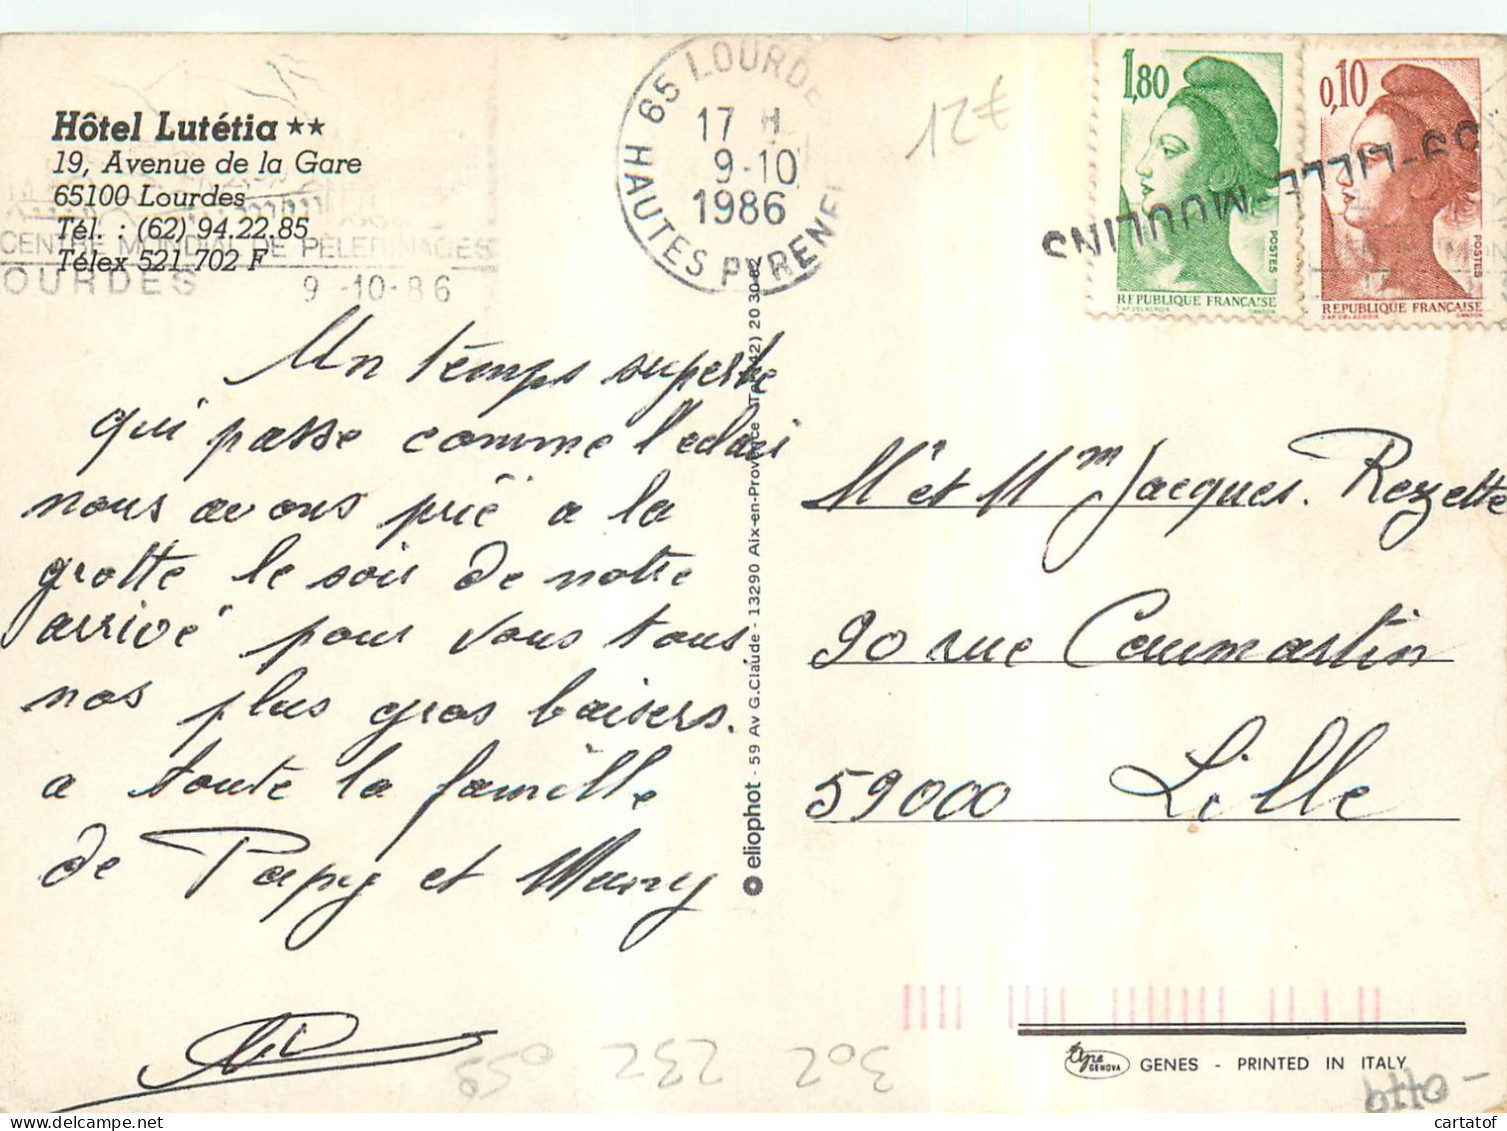 Hôtel Lutétia ★★
19, Avenue de la Gare
65100 Lourdes
Tél. : (62) 94.22.85
Télex 521 702 F
CENTRE MONDIAL DE PELERINAGES
OURDES 9-10-86
65 LOURDE
17 H
9-10
1986
HAUTES PYRENE
12F
1,80
POSTES
REPUBLIQUE FRANÇAISE
0,10
POSTES
REPUBLIQUE FRANÇAISE
59-LILLE MOULINS
Un temps superbe
qui passe comme l'eclair
nous avons prié a la
grotte le soir de notre
arrivé pour vous tous
nos plus gros baisers.
a toute la famille
de Papy et Mamy
eliophot - 59 Av G.Claude - 13290 Aix-en-Provence - Tél (42) 20 30 82
Mr et Mm Jacques. Rezette
90 rue Caumartin
59000 Lille
059 232 302
Ape GENOVA GENES - PRINTED IN ITALY
cartatof